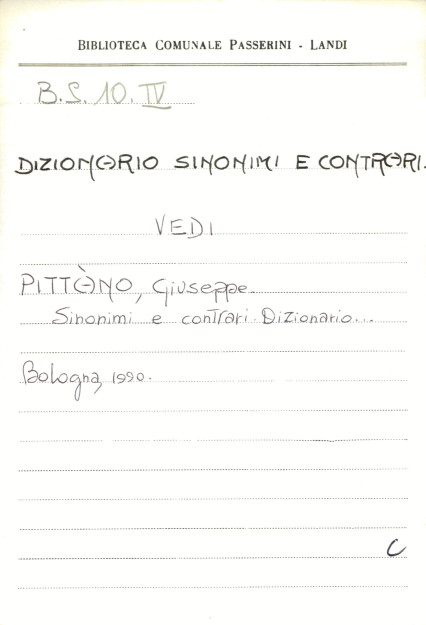 BIBLIOTECA COMUNALE PASSERINI - LANDI
B.S. 10. IV
DIZIONARIO SINONIMI E CONTRARI.
VEDI
PITTÀNO, Giuseppe.
Sinonimi e contrari. Dizionario...
Bologna, 1990.
C